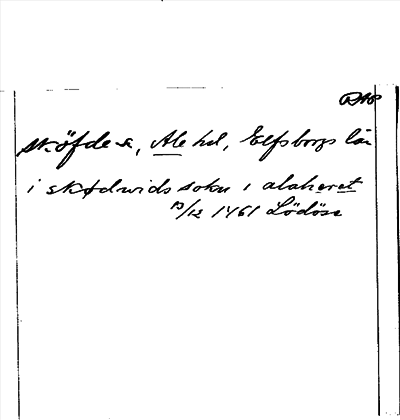 RAP
Sköfde sn, Ale hd, Elfsborgs län
i skødwids sokn i alahæret
13/12 1461 Lödöse